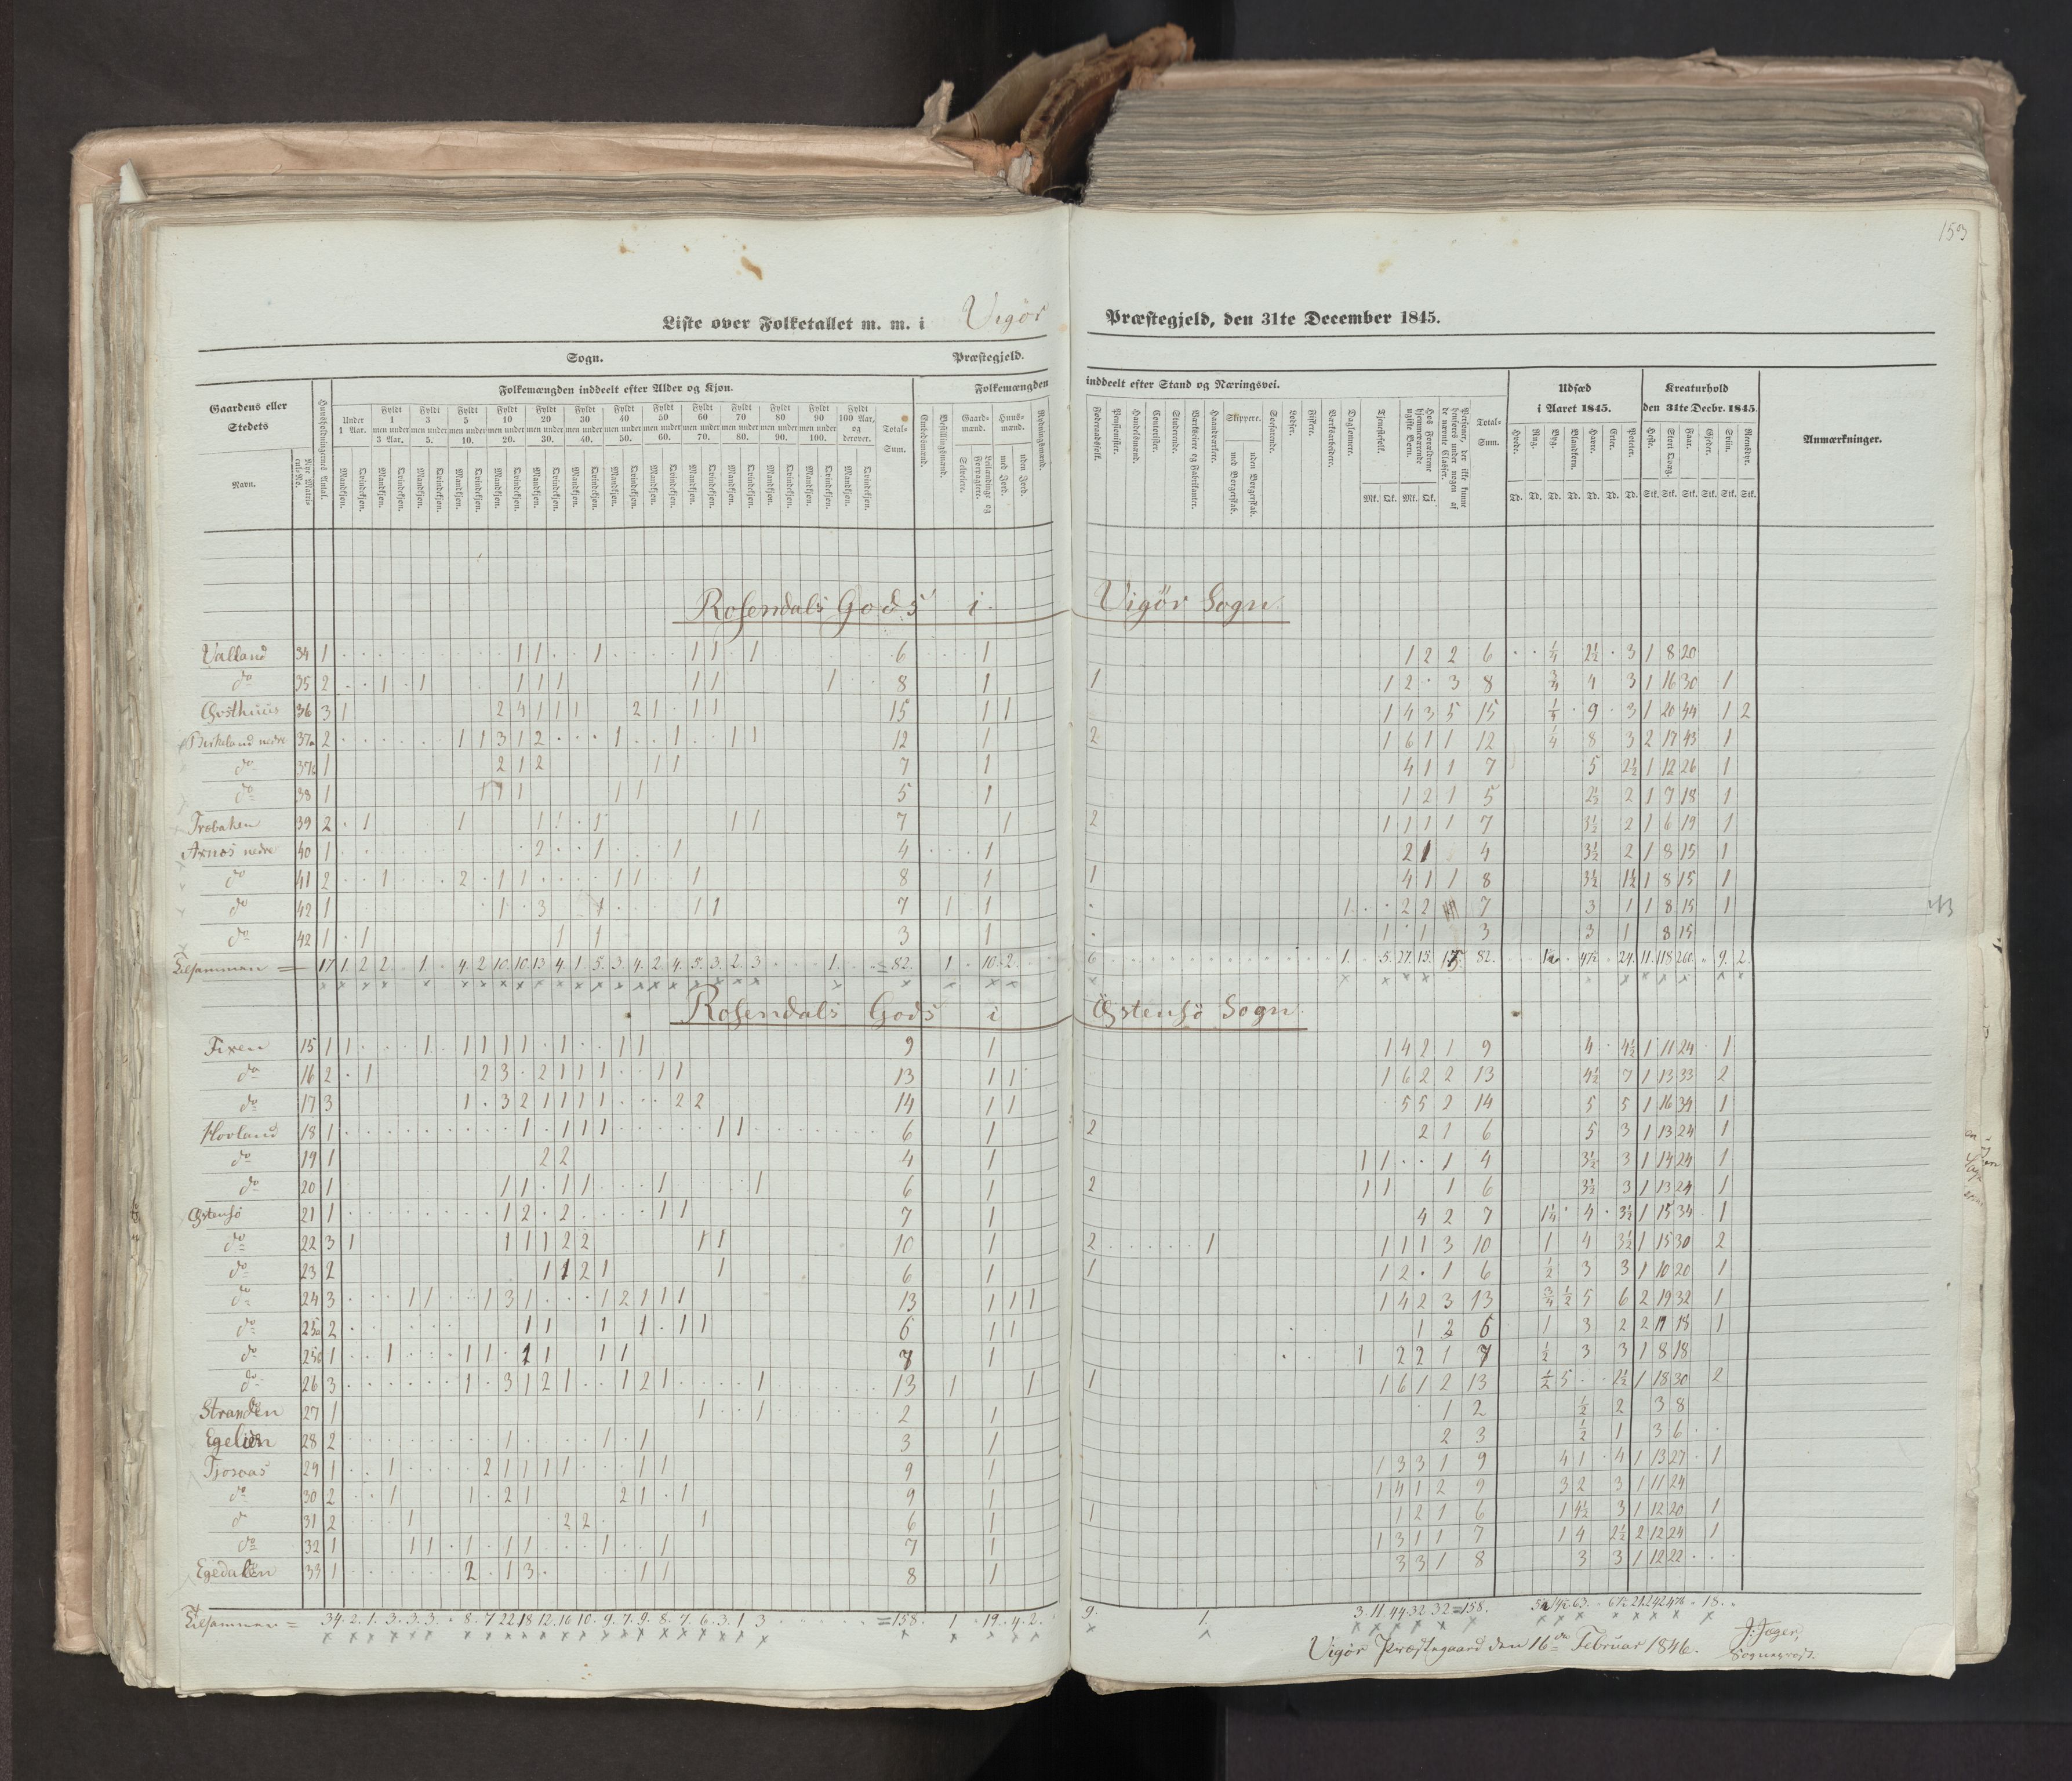 153
Liste over Folketallet m. m. i Vigör Præstegjeld, den 31te December 1845.
Sogn. Præstegjeld.
Gaardens eller Stedets Navn.
Nye Matricul-No.
Huusholdningernes Antal.
Folkemængden inddeelt efter Alder og Kjøn.
Under 1 Aar.
Fyldt 1 men under 3 Aar.
Fyldt 3 men under 5.
Fyldt 5 men under 10.
Fyldt 10 men under 20.
Fyldt 20 men under 30.
Fyldt 30 men under 40.
Fyldt 40 men under 50.
Fyldt 50 men under 60.
Fyldt 60 men under 70.
Fyldt 70 men under 80.
Fyldt 80 men under 90.
Fyldt 90 men under 100.
Fyldt 100 Aar, og derover.
Mandkjøn. Qvindekjøn.
Total-Sum.
Folkemængden inddeelt efter Stand og Næringsvei.
Embedsmænd.
Bestillingsmænd.
Gaardmænd.
Selveiere.
Leilændinge og Forpagtere.
Huusmænd.
med Jord.
uden Jord.
Rydningsmænd.
Føderaadsfolk.
Pensionister.
Handelsmænd.
Contorister.
Studerende.
Værkseiere og Fabrikanter.
Haandværkere.
Skippere.
med Borgerskab.
uden Borgerskab.
Søefarende.
Lodser.
Fiskere.
Værksarbeidere.
Daglønnere.
Tjenestefolk.
Mk. Qk.
Hos Forældrene hjemmeværende ugifte Børn.
Mk. Qk.
Personer, der ikke kunne henføres under nogen af de nævnte Classer.
Total-Sum.
Udsæd i Aaret 1845.
Hvede. Rug. Byg. Blandkorn. Havre. Erter. Poteter.
Td. Td. Td. Td. Td. Td. Td.
Kreaturhold den 31te Decbr. 1845.
Heste. Stort Qvæg. Faar. Gjeder. Sviin. Rensdyr.
Stk. Stk. Stk. Stk. Stk. Stk.
Anmærkninger.
Rosendals Gods i Vigör Sogn.
Valland 34 1 1 1 1 1 1 1 6 1 1 2 2 6 1/4 2½ 3 1 8 20
do 35 2 1 1 1 1 1 1 1 1 8 1 1 1 2 3 8 3/4 4 3 1 16 30 1
36 3 1 2 4 1 1 1 1 2 1 1 1 15 1 1 1 4 3 5 15 9 3 1 20 44 1 2
Birkeland nedre 37a 2 1 1 3 1 2 1 1 1 1 12 1 2 1 6 1 1 12 1/4 8 3 2 17 43 1
do 37b 1 2 1 2 1 1 7 1 4 1 1 7 5 2½ 1 12 26 1
do 38 1 1 1 1 1 1 5 1 1 2 1 5 2½ 2 1 7 18 1
39 2 1 1 1 1 1 1 1 7 1 2 1 1 1 1 7 3½ 2 1 6 19 1
nedre 40 1 2 1 1 4 1 2 1 4 3½ 2 1 8 15 1
do 41 2 1 2 1 1 1 1 1 8 1 1 4 1 1 8 3½ 1½ 1 8 15 1
do 42 1 1 3 1 1 1 7 1 1 1 2 2 7 3 1 1 8 15 1
do 42 1 1 1 1 3 1 1 1 3 3 1 8 15
Tilsammen = 17 1. 2 2. 1. 4. 2 10. 10. 13 4. 1. 5. 3. 4. 2. 4. 5. 3. 2. 3. 1. = 82. 1. 10. 2. 6 1. 5. 27. 15. 82. 24. 11. 118 260 9. 2.
Rosendals Gods i Östensö Sogn.
Fixen 15 1 1 1 1 1 1 1 1 1 1 9 1 1 4 2 1 9 4 4½ 1 11 24 1
do 16 2 1 2 3 2 1 1 1 1 1 13 1 1 1 6 2 2 13 4½ 7 1 13 33 2
do 17 3 1 3 2 1 1 1 1 2 2 14 1 1 5 5 2 14 5 5 1 16 34 1
Hovland 18 1 1 1 1 1 1 1 6 1 2 2 1 6 5 3 1 13 24 1
do 19 1 2 2 4 1 1 1 1 4 3½ 3 1 14 24 1
do 20 1 1 1 1 1 1 1 6 1 2 1 1 1 6 3½ 3 1 13 24 1
Östensö 21 1 1 2 2 1 1 7 1 4 2 7 1¼ 4 3½ 1 15 34 1
do 22 3 1 1 1 1 2 2 1 1 10 1 2 1 1 1 1 3 10 1 4 3½ 1 15 30 2
do 23 2 1 1 2 1 1 6 1 1 1 2 1 6 ½ 3 3 1 10 20 1
do 24 3 1 1 1 3 1 1 2 1 1 1 13 1 1 1 1 4 2 3 13 3/4 ½ 5 6 2 19 32 1
do 25a 2 1 1 1 1 1 1 6 1 1 1 2 6 1 3 2 2 18 1
do 25b 1 1 1 1 1 1 1 1 7 1 1 2 2 1 7 ½ 3 3 1 8 18
do 26 3 1 3 1 2 1 1 2 1 1 13 1 1 1 1 6 1 2 13 ½ 5 2½ 1 18 30 2
Stranden 27 1 1 1 2 1 1 2 ½ 2 3 8
Egelien 28 2 1 1 1 3 1 2 3 ½ 1 3 6
29 1 1 2 1 1 1 1 1 1 9 1 1 3 3 1 9 4 1 4 1 13 27 1
do 30 2 1 1 2 1 2 1 1 9 1 1 4 1 2 9 3 2 3 1 11 24
do 31 2 1 2 2 1 6 1 1 1 2 1 6 1 4½ 3 1 12 20 1
do 32 1 1 1 1 1 1 1 1 7 1 1 3 1 1 7 1 4 2½ 2 12 24 1
Egedalen 33 1 2 1 3 1 1 8 1 3 3 1 8 3 3 1 12 22
Tilsammen = 34. 2. 1. 3. 3. 3. 8. 7 22 18 12. 16 10. 9. 7. 9. 8. 7. 6. 3. 1 3 = 158. 1 19. 4. 2. 9. 1. 3. 11. 44 32 32 = 158. 63. 18.
Vigör Præstegaard den 16de Februar 1846.
J: Jæger,
Sogneprest.